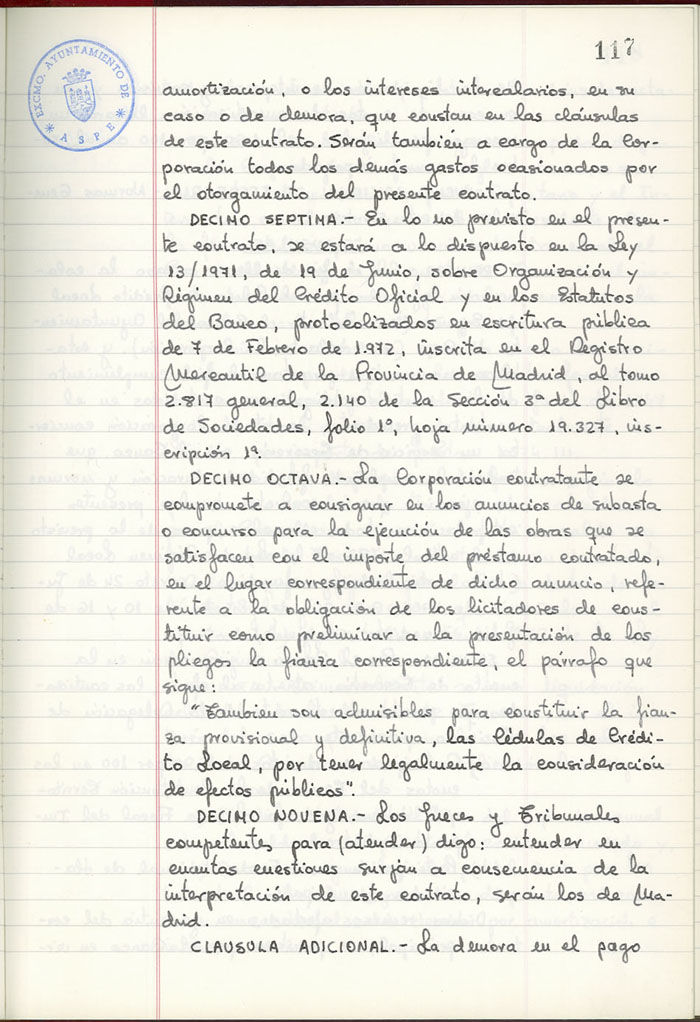 117
EXCMO. AYUNTAMIENTO DE
* ASPE *
amortización, o los intereses intercalarios, en su
caso o de demora, que constan en las cláusulas
de este contrato. Serán también a cargo de la Cor-
poración todos los demás gastos ocasionados por
el otorgamiento del presente contrato.
DECIMO SEPTIMA.- En lo no previsto en el presen-
te contrato, se estará a lo dispuesto en la Ley
13/1971, de 19 de Junio, sobre Organización y
Régimen del Crédito Oficial y en los Estatutos
del Banco, protocolizados en escritura pública
de 7 de Febrero de 1.972, inscrita en el Registro
Mercantil de la Provincia de Madrid, al tomo
2.817 general, 2.140 de la Sección 3ª del Libro
de Sociedades, folio 1º, hoja número 19.327, ins-
cripción 1ª.
DECIMO OCTAVA.- La Corporación contratante se
compromete a consignar en los anuncios de subasta
o concurso para la ejecución de las obras que se
satisfacen con el importe del préstamo contratado,
en el lugar correspondiente de dicho anuncio, refe-
rente a la obligación de los licitadores de cons-
tituir como preliminar a la presentación de los
pliegos la fianza correspondiente, el párrafo que
sigue:
"También son admisibles para constituir la fian-
za provisional y definitiva, las Cédulas de Crédi-
to Local, por tener legalmente la consideración
de efectos públicos".
DECIMO NOVENA.- Los Jueces y Tribunales
competentes para (atender) digo: entender en
cuantas cuestiones surjan a consecuencia de la
interpretación de este contrato, serán los de Ma-
drid.
CLAUSULA ADICIONAL.- La demora en el pago